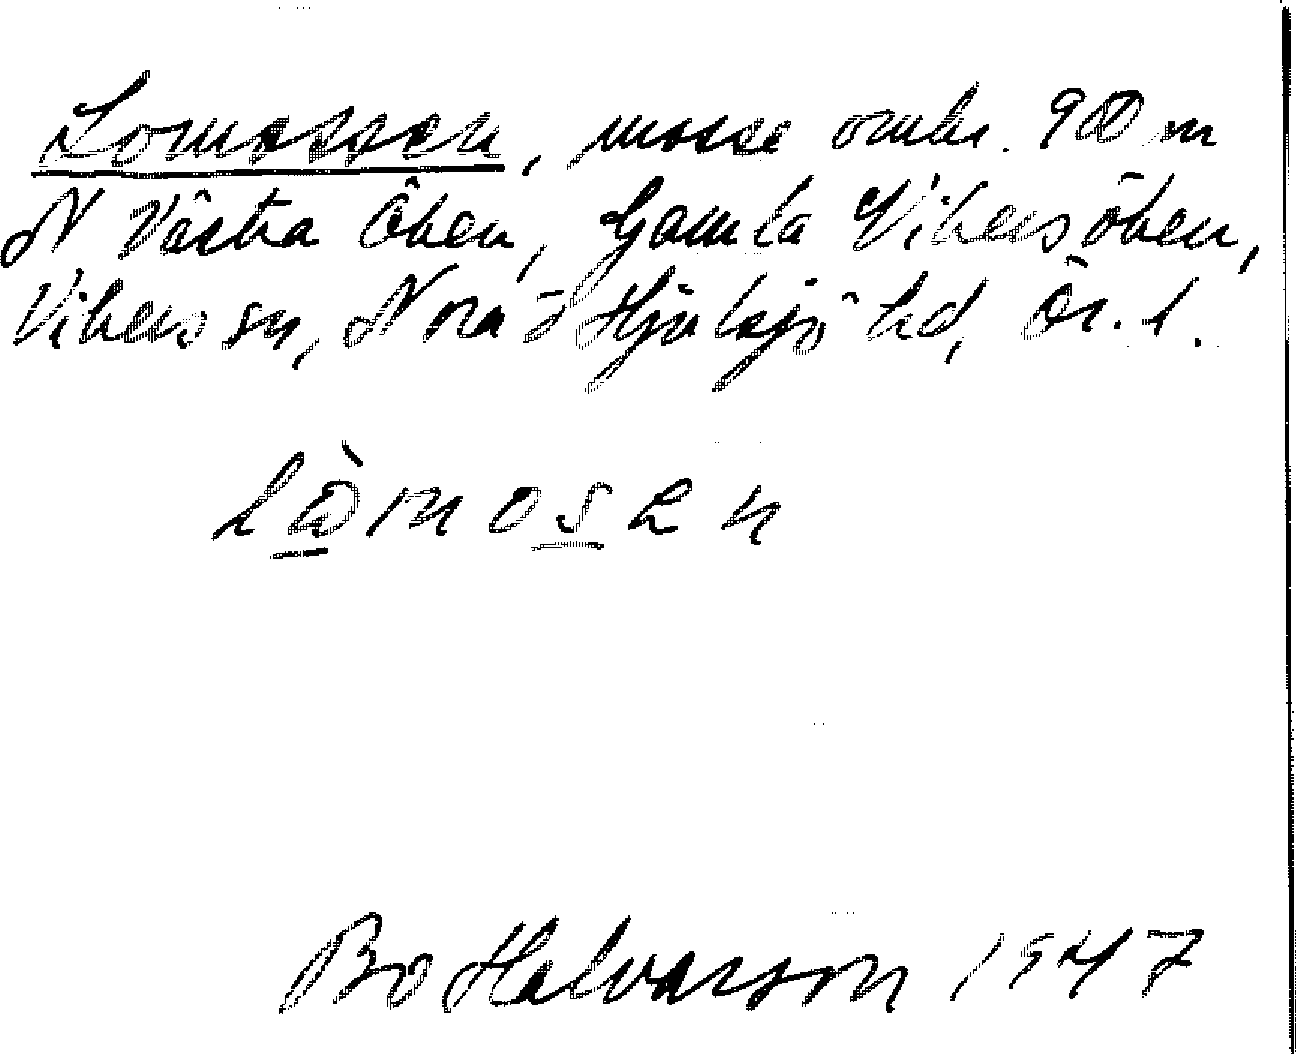 Lomossen, mosse omkr. 900 m
N Västra Öken, Gamla Vikersöken,
Vikers sn, Nora o Hjulsjö hd, Ör. l.
lòmosen
Bo Halvarson 1947